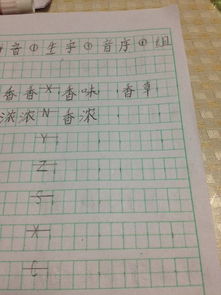 音①生字①音序①组
香香X香味 香草
浓浓N香浓
Y
Z
S
X
C